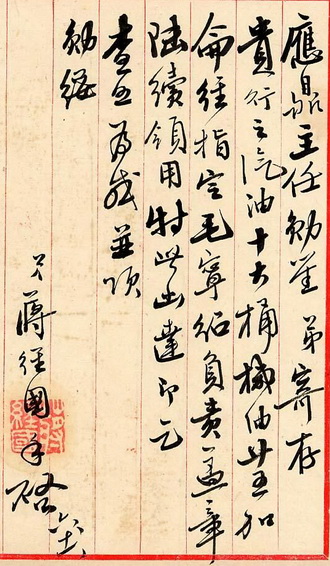 應鼎主任勛鑒 弟寄存
貴行之汽油十六桶機油廿五加
侖經指定毛寧紹負責蓋章
陸續領用特此函達即乞
查照為感並頌
勛綏
弟蔣經國手啟